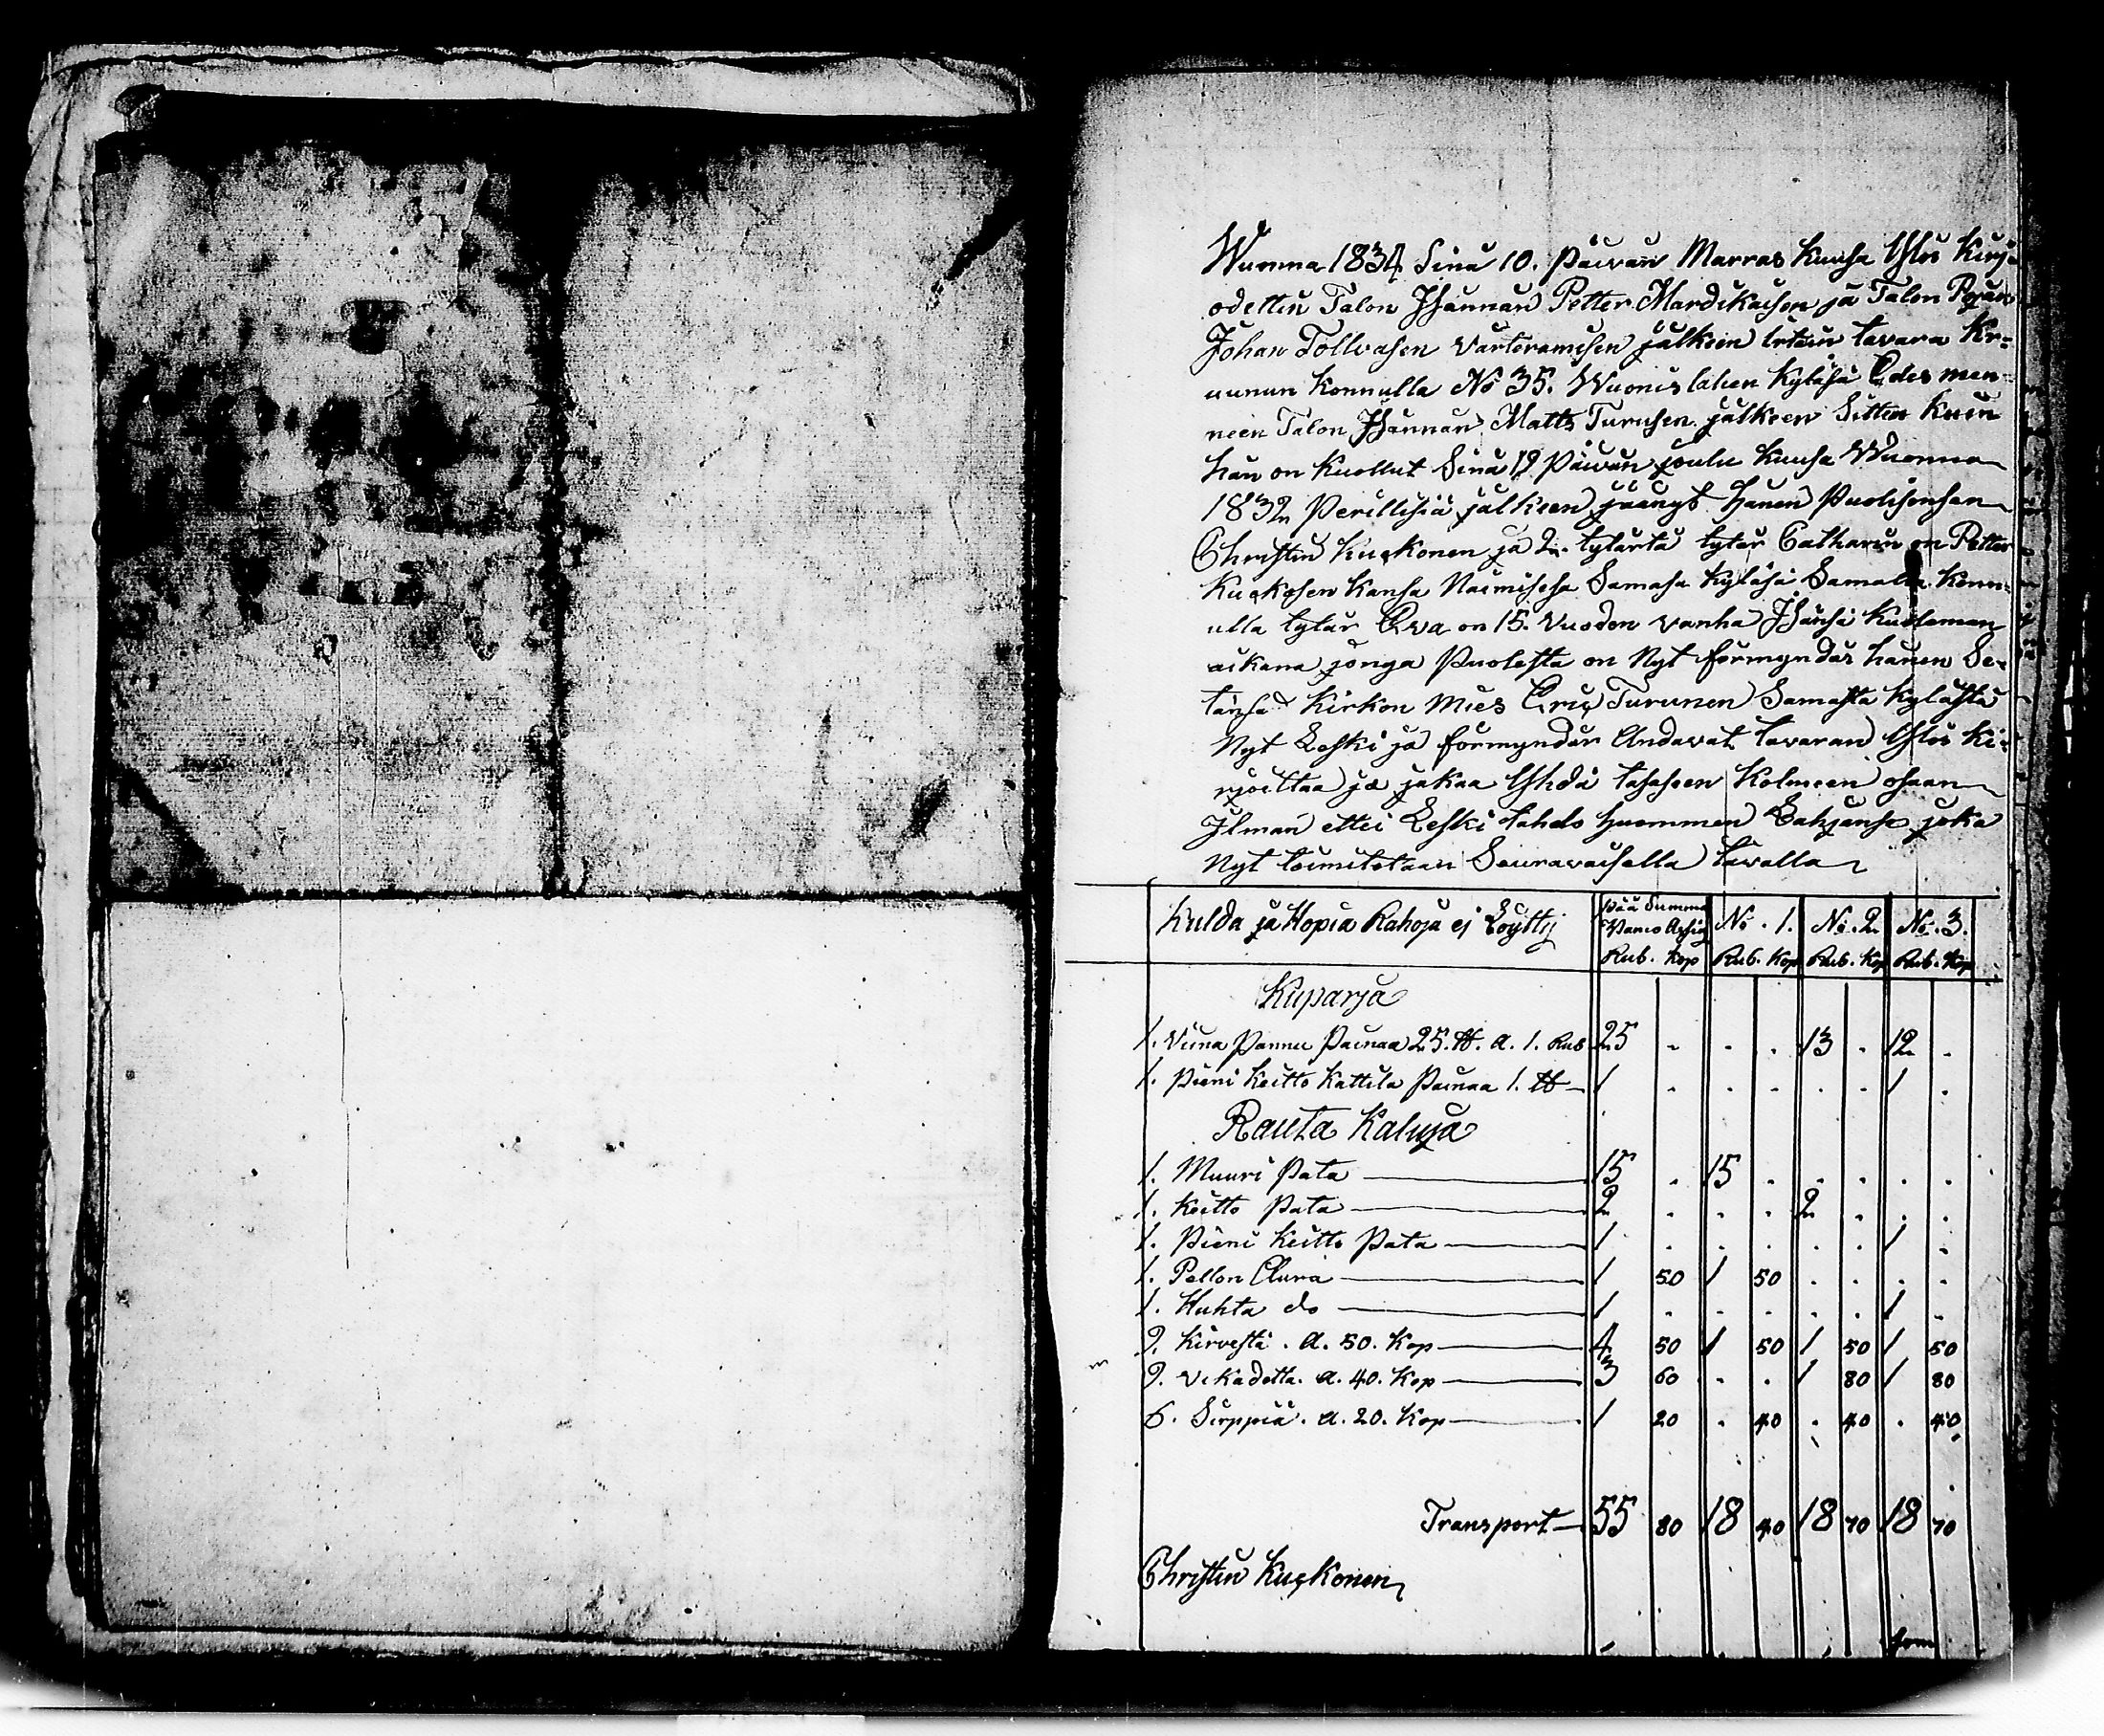 Wuonna 1834 Sinä 10. päivän Marras kuusa Ylös kirj-
odettin Talon Isännän Petter Mardikaisen ja Talon Pojan
Johan Tollvasen värteramisen jälkein irtain tavara Kr=
uunun konnulla No 35. Wuonislahen Kyläsä Edes men-
neen Talon Isännän Matts Turusen jälkeen Sitten kuin
hän on kuollut Sinä 19 päivän joulu kuusa Wuonna
1832 Perillisiä jälkeen jäänyt hänen Puolisonsan
Christin Kuckonen ja 2. tytärtä tytär Catharin on Petter
Kuckosen kansa Naimisesa Samasa kyläsä Samalla konn=
ulla tytär Eva on 15. vuoden vanha Isänsä kuoleman
aikana jonga Puolesta on Nyt förmyndär hänen Se-
tänsä Kirkon Mies Eric Turunen Samasta kylästä
Nyt Leski ja förmyndär Andavat tavaran Ylös ki-
rjoittaa ja jakaa Yhdä tasaseen kolmeen osaan
Ilman ettei Leski tahdo huommen Lahjansa joka
Nyt toimitetaan Seuravaisella tavalla
Kulda ja Hopia Rahoja ej Löytty Pää Summa Banco Assig No. 1. No. 2. No. 3.
Rub. Kop Rub. Kop Rub. Kop Rub. Kop
Kuparja
1. Viina Pannu Painaa 25. ℔. a. 1. Rub 25 - - . 13 . 12 .
1. Pieni keitto kattila Painaa 1. ℔ 1 . . . . . 1 .
Rauta Kaluja
1. Muuri Pata 15 . 15 . . . . .
1. Keitto Pata 2 . . . 2 . . .
1. Pieni Keitto Pata 1 . . . . . 1 .
1. Pellon Aura 1 50 1 50 . . . .
1. Huhta do 1 . . . . . 1 .
9. Kirvestä. a. 50. Kop 4 50 1 50 1 50 1 50
9. Vikadetta. a. 40. Kop 3 60 . . 1 80 1 80
6. Sirppiä. a. 20. Kop 1 20 . 40 . 40 . 40
Transport 55 80 18 40 18 70 18 70
Christin Kuckonen